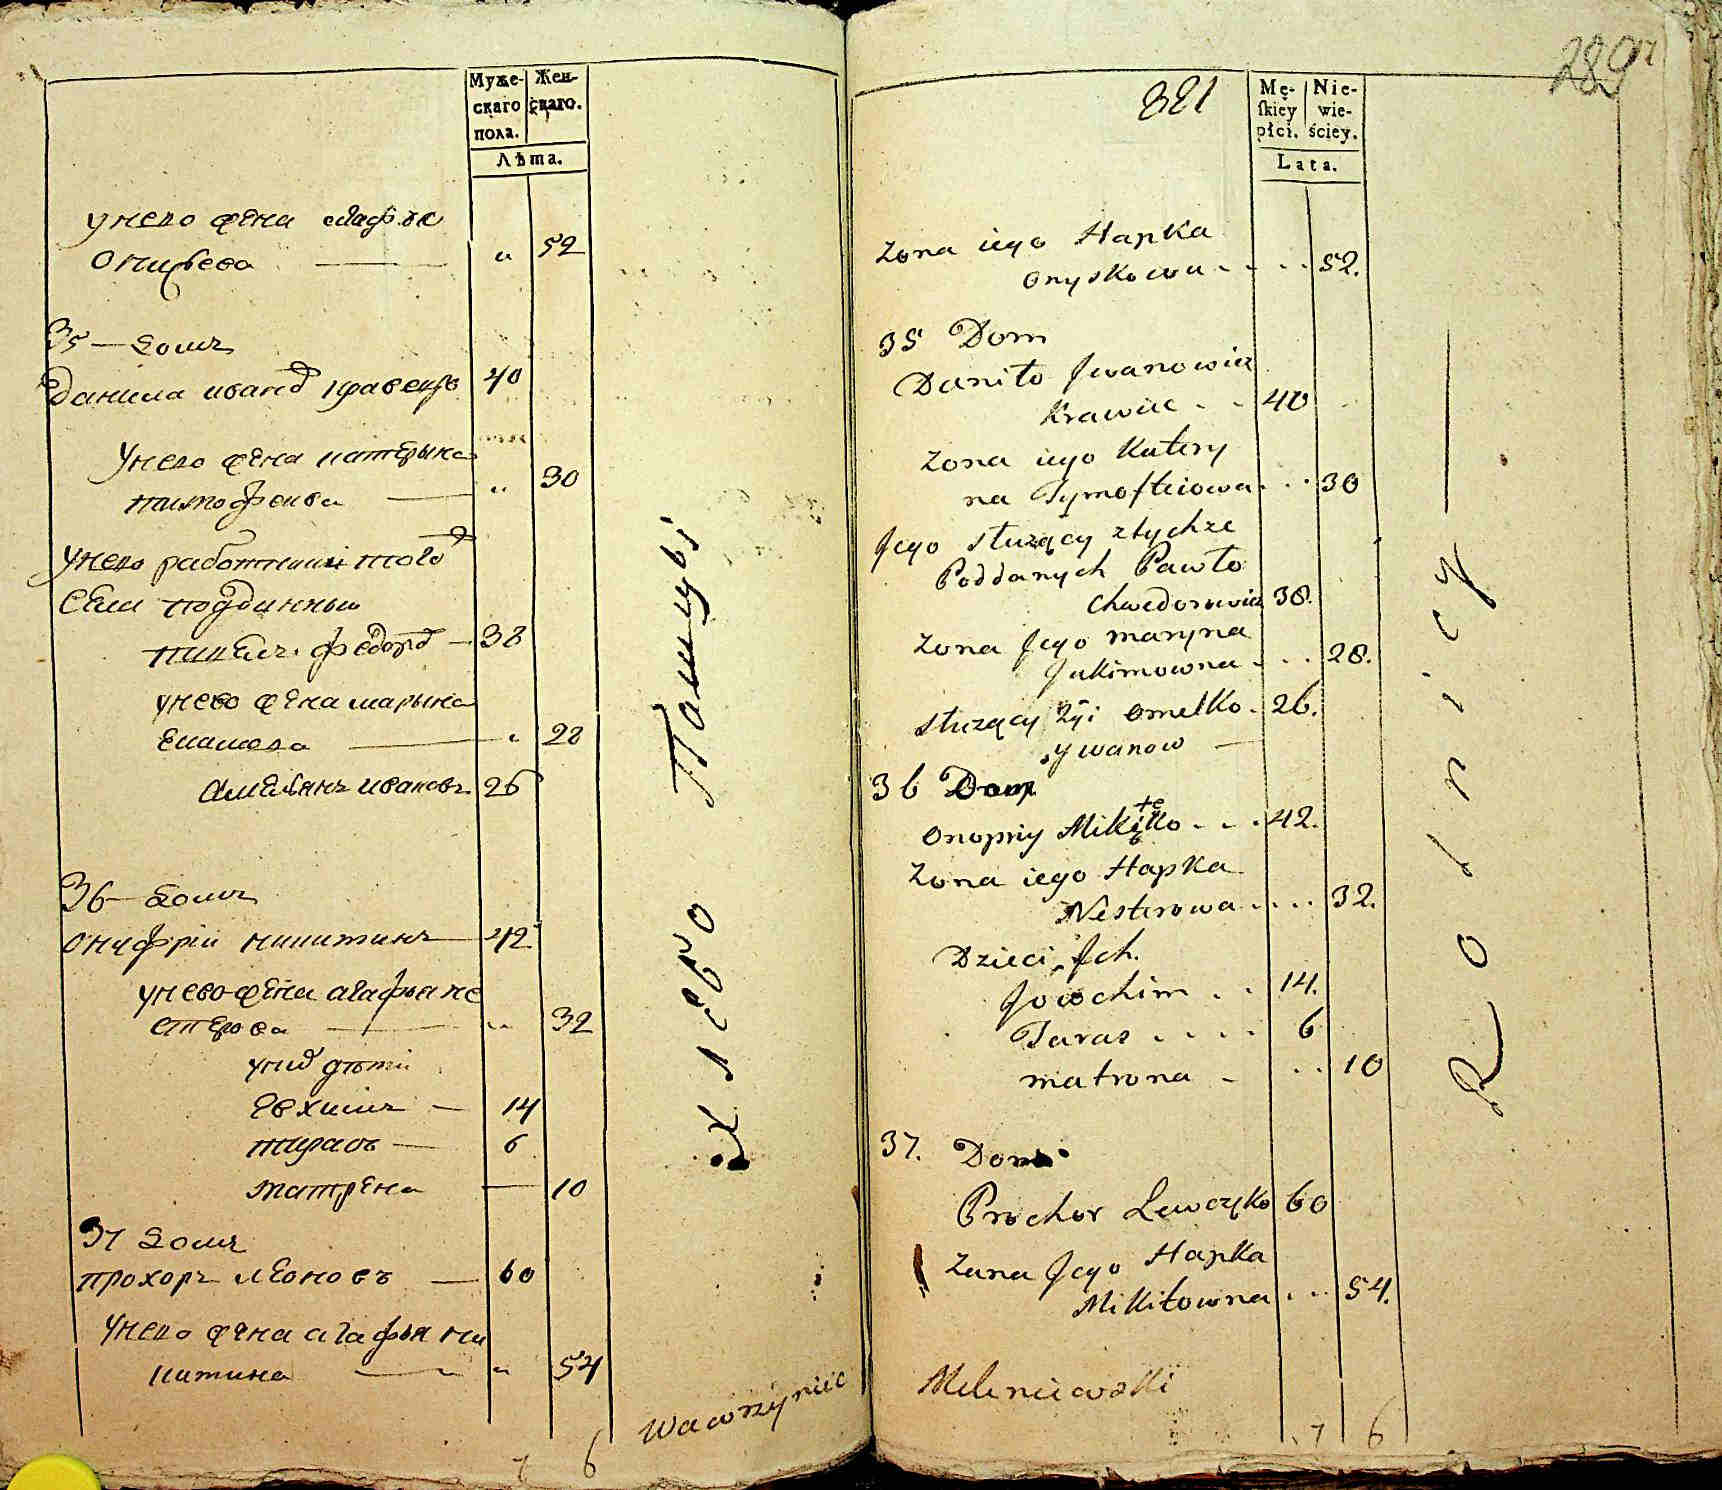 Муже- Жен-
скаго скаго.
пола.
Лѣта.
унего жена агафья
52
35 — Домъ
Данила иванов кравецъ 40
унего жена катерына
тимофеива 30
унего работники того
села подданныи
павелъ федоров — 38
унего жена марына
Екимова 28
Амельянъ ивановъ 26
36 — Домъ
онуфріи никитинъ 42
унего жена агафья не
стерова 32
уних дети
Евхимъ — 14
тарасъ — 6
матрена — 10
37 Домъ
прохоръ леоновъ — 60
унего жена агафья ни
китина 54
7 6
Wawrzyniec
289
321
Mę- Nie-
skiey wie-
płci. ściey.
Lata.
Zona iego Hapka
Onyskowa . . . . 52.
35 Dom
Daniło Jwanowicz
Krawiec . . 40
Zona iego Katery
na Tymofteiowa . . . 30
Jego słuzący ztychze
Poddanych Pawło
Chwedorowicz 38.
Zona Jego maryna
Jakimowna . . . 28.
słuzący Omelko . 26.
ywanow —
36 Dom
Onopriy . . . 42.
Zona iego Hapka
Nesterowa . . . . 32.
Dzieci Jch.
Jowchim . . 14.
Taras . . . . 6
matrona . . . 10
37. Dom
Prochor Lewczyko 60
Zona Jego Hapka
Mikitowna . . . 54.
Meleniewski
7 6
Rolnicy